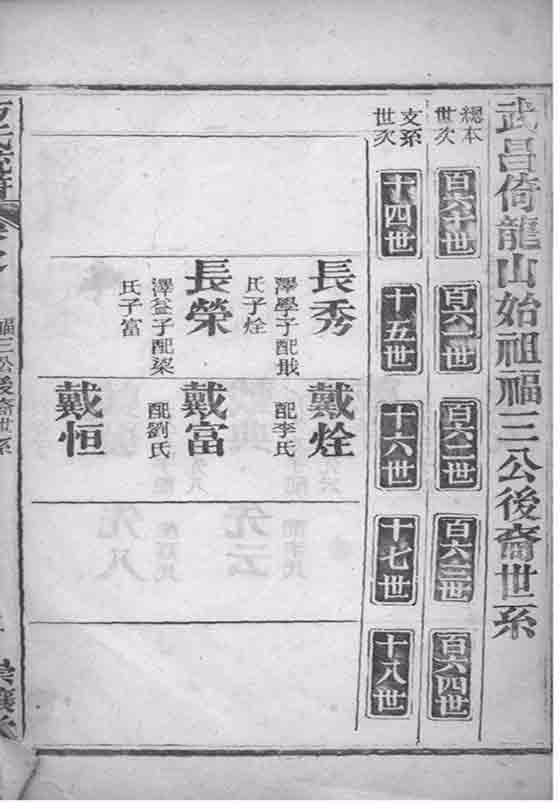 武昌倚龍山始祖福三公後裔世系
總本
世次
百六十世
百六一世
百六二世
百六三世
百六四世
支系
世次
十四世
十五世
十六世
十七世
十八世
長秀
澤學子配戢
氏子烇
長榮
澤益子配梁
氏子富
戴烇
配李氏
戴富
配劉氏
戴恒
福三公後裔世系